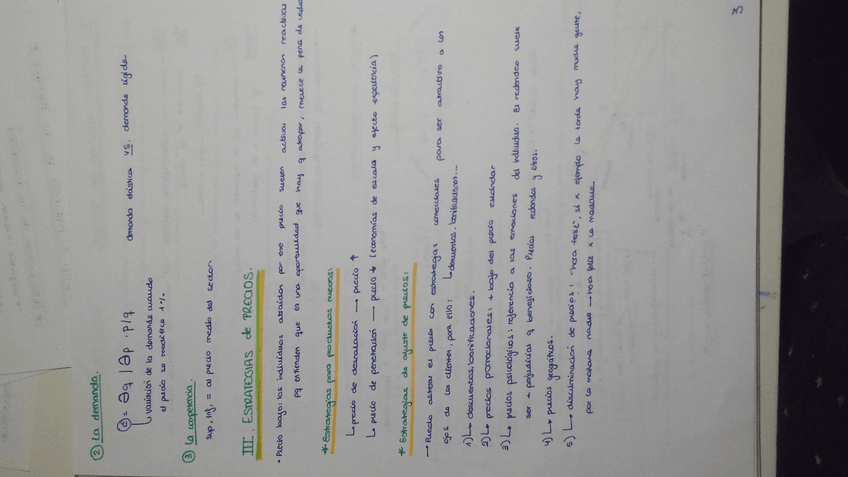 ② La demanda.
e = ∂q / ∂p · p/q demanda elástica vs. demanda rígida.
↳ variación de la demanda cuando
el precio se modifica 1%.
③ La competencia.
sup, inf, = al precio medio del sector.
III. ESTRATEGIAS de PRECIOS.
• Precio bajo: los individuos atraídos por ese precio suelen activar las neuronas reactivas
pq entienden que es una oportunidad que hay q atrapar, merece la pena
* Estrategias para productos nuevos:
↳ precio de desnatación → precio ↑
↳ precio de penetración → precio ↓ (economías de escala y efecto experiencia)
* Estrategias de ajuste de precios:
→ Puedo activar el precio con estrategias comerciales para ser atractivo a los
ojos de los clientes, para ello: ↳ descuentos, bonificaciones...
1) ↳ descuentos, bonificaciones.
2) ↳ precios promocionales: + bajo del precio estándar
3) ↳ precios psicológicos: referencia a las emociones del individuo. El redondeo suele
ser + perjudicial q beneficioso. Precios redondos y otros.
4) ↳ precios geográficos.
5) ↳ discriminación de precios: "hora feliz", si x ejemplo la tarde hay mucha gente,
por la mañana nadie → hora feliz x la mañana.
3